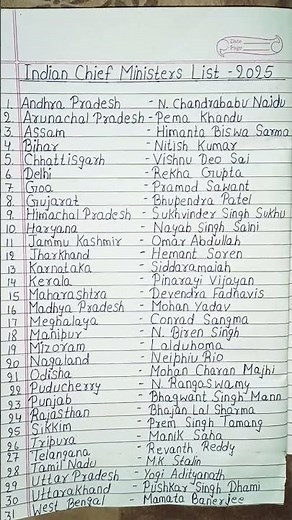 Date
Page
Indian Chief Ministers List - 2025
1. Andhra Pradesh - N. Chandrababu Naidu
2 Arunachal Pradesh - Pema Khandu
3 Assam - Himanta Biswa Sarma
4 Bihar - Nitish Kumar
5 Chhattisgarh - Vishnu Deo Sai
6 Delhi - Rekha Gupta
7 Goa - Pramod Sawant
8 Gujarat - Bhupendra Patel
9 Himachal Pradesh - Sukhvinder Singh Sukhu
10 Haryana - Nayab Singh Saini
11 Jammu Kashmir - Omar Abdullah
12 Jharkhand - Hemant Soren
13 Karnataka - Siddaramaiah
14 Kerala - Pinarayi Vijayan
15 Maharashtra - Devendra Fadnavis
16 Madhya Pradesh - Mohan Yadav
17 Meghalaya - Conrad Sangma
18 Manipur - N. Biren Singh
19 Mizoram - Lalduhoma
20 Nagaland - Neiphiu Rio
21 Odisha - Mohan Charan Majhi
22 Puducherry - N. Rangaswamy
23 Punjab - Bhagwant Singh Mann
24 Rajasthan - Bhajan Lal Sharma
25 Sikkim - Prem Singh Tamang
26 Tripura - Manik Saha
27 Telangana - Revanth Reddy
28 Tamil Nadu - M.K Stalin
29 Uttar Pradesh - Yogi Adityanath
30 Uttarakhand - Pushkar Singh Dhami
31 West Bengal - Mamata Banerjee